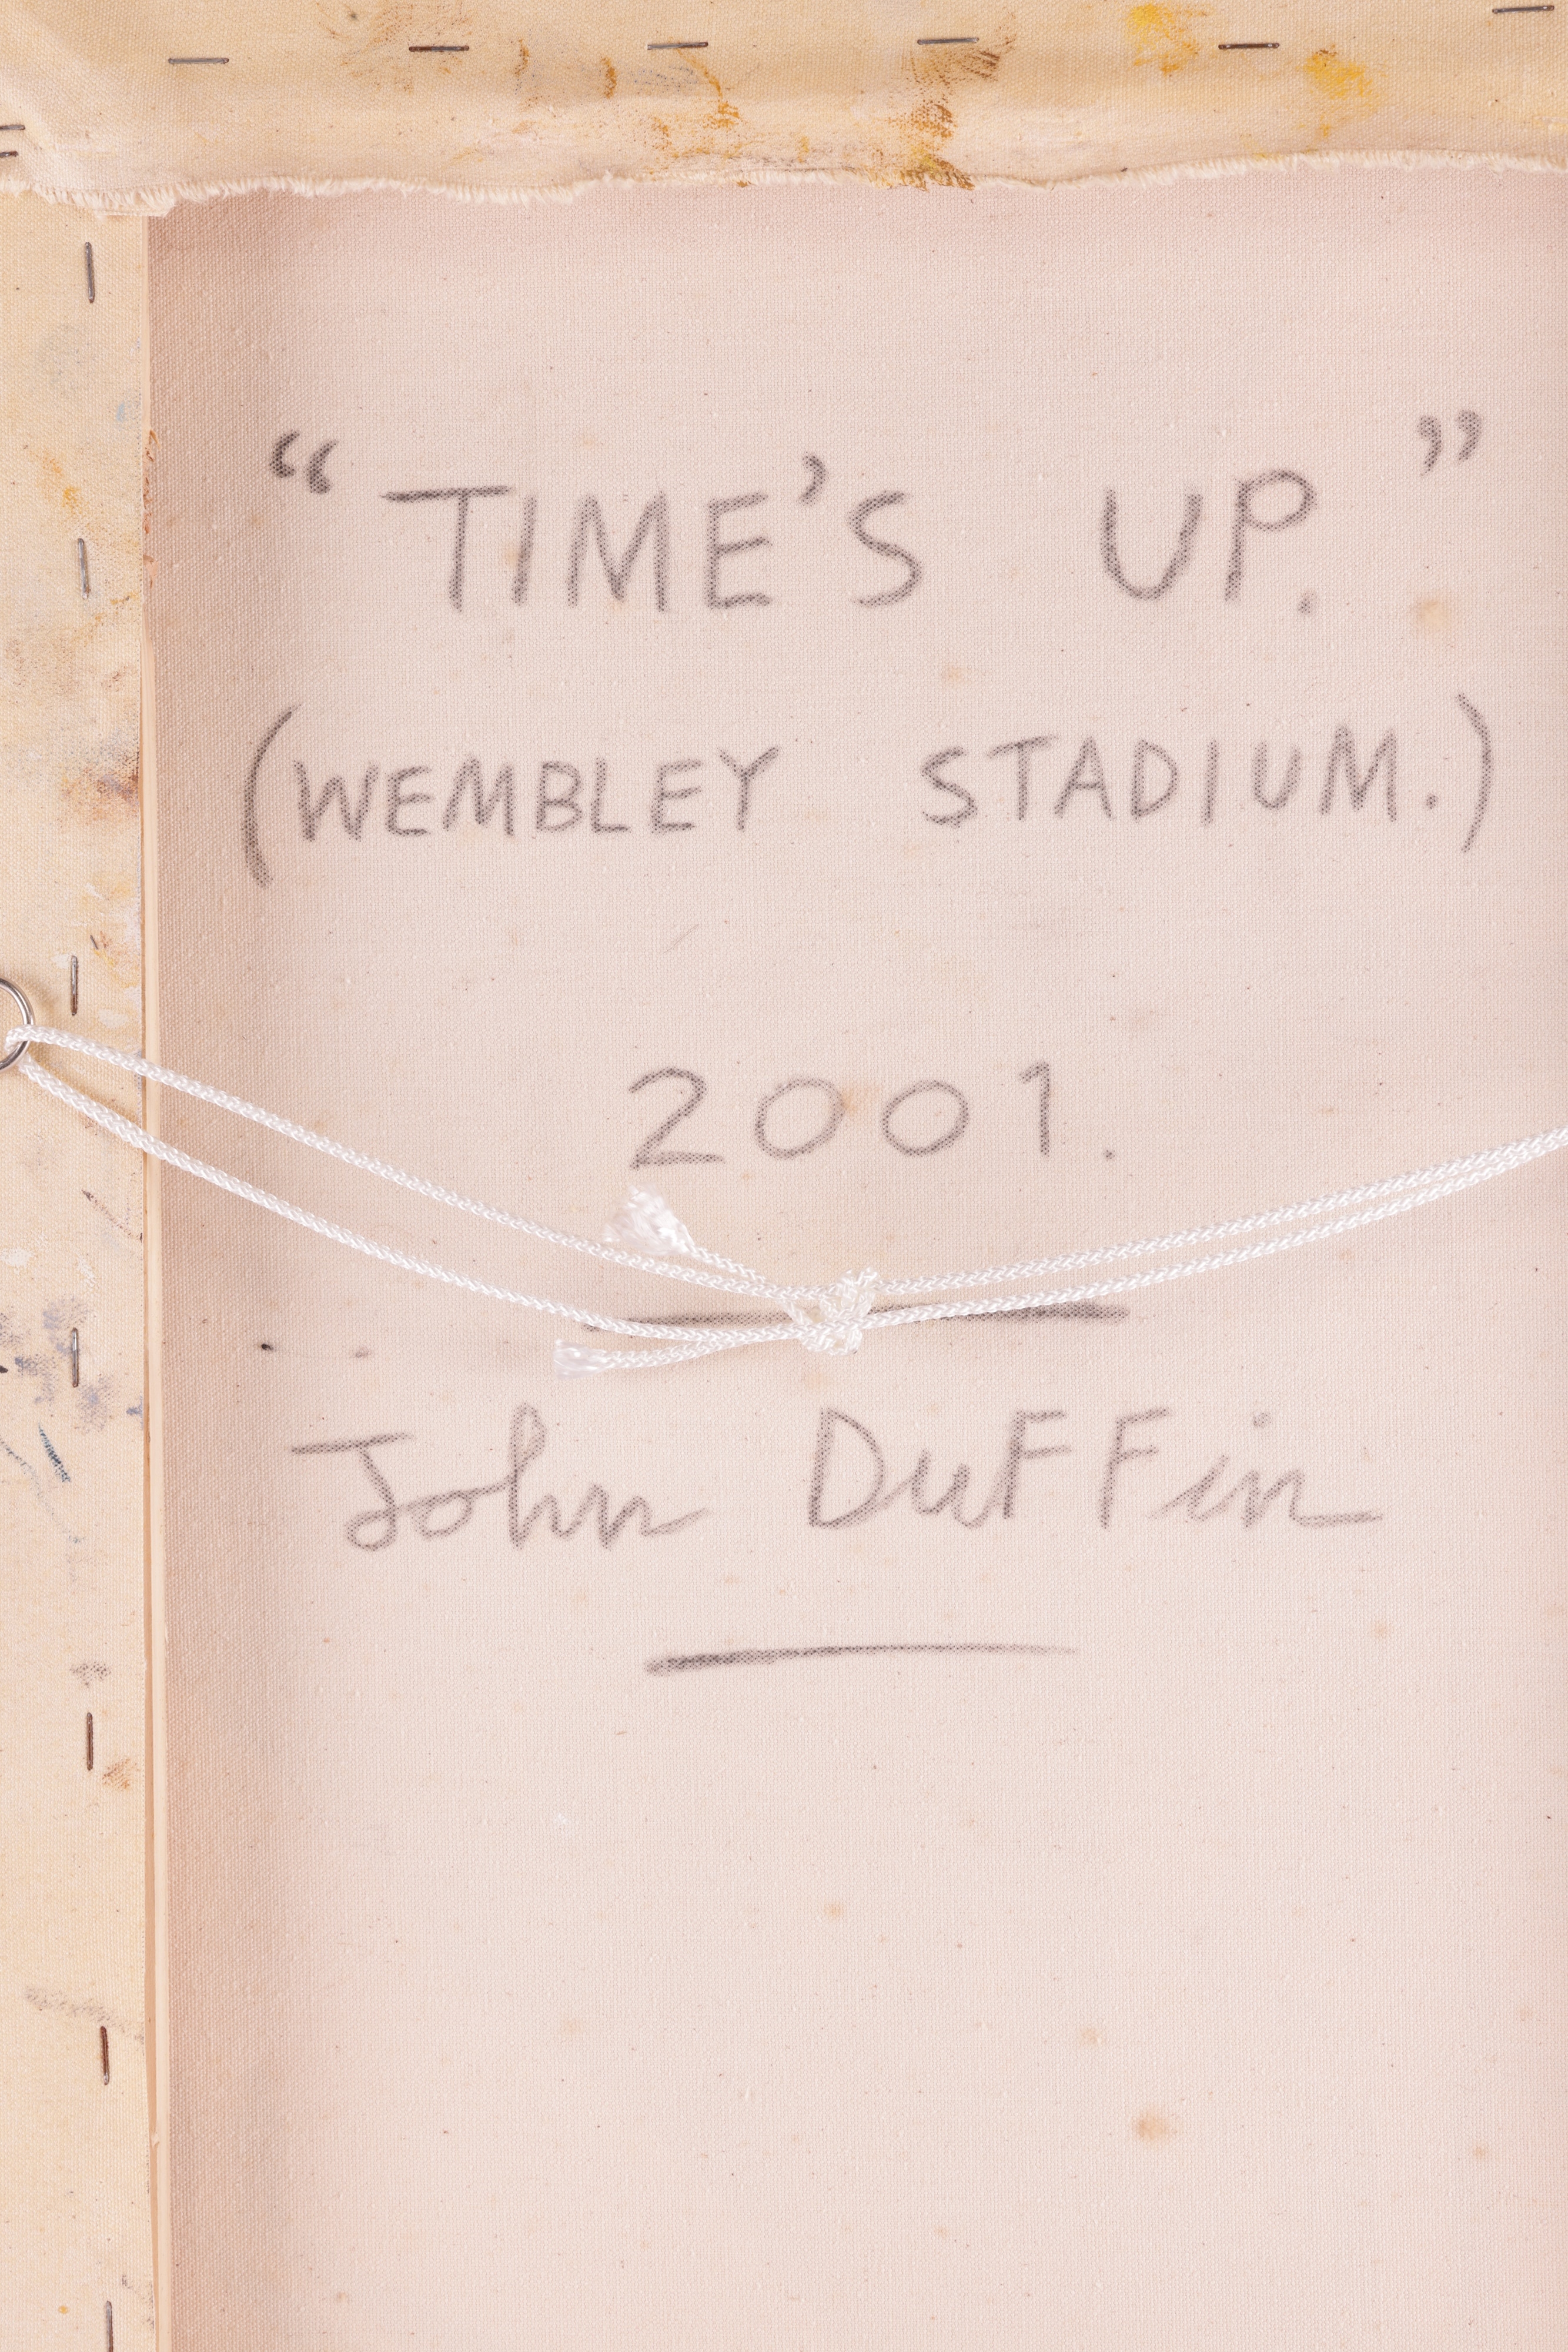 “TIME’S UP.”
(WEMBLEY STADIUM.)
2001.
John DuFFin